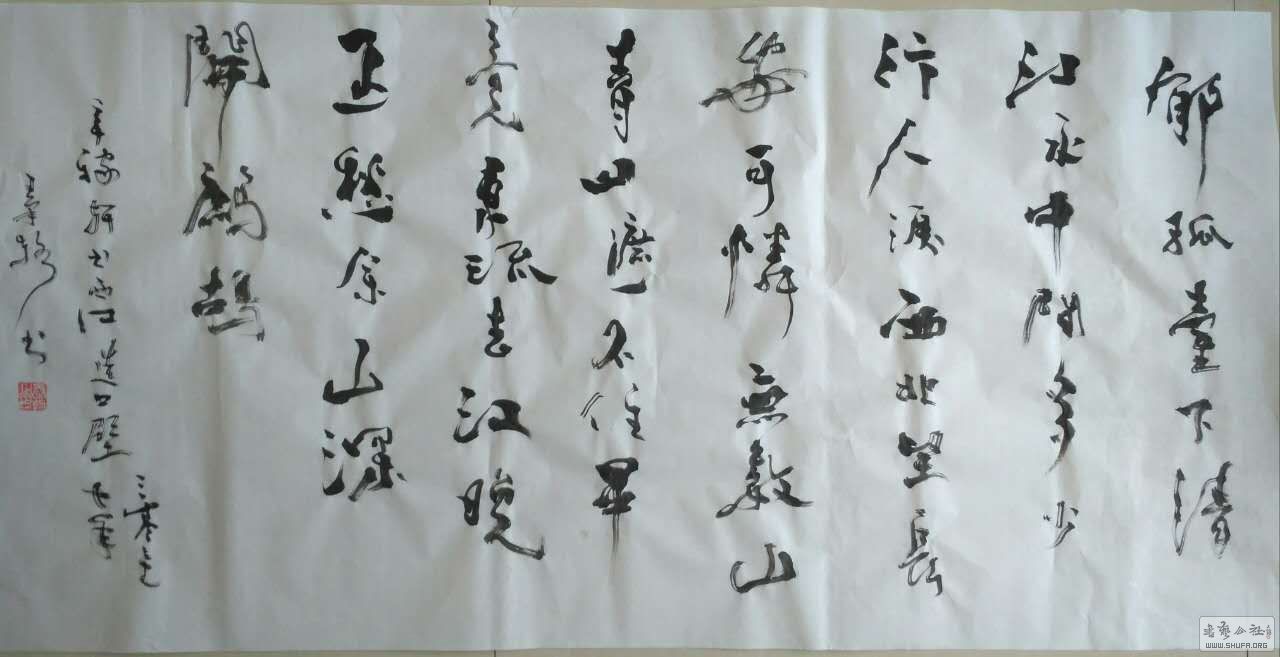 郁孤臺下清
江水中間多少
行人淚西北望長
安可憐無數山
青山遮不住畢
竟東流去江晚
正愁余山深
聞鷓鴣
辛稼軒书西江造口壁
书
書藝公社
WWW.SHUFA.ORG